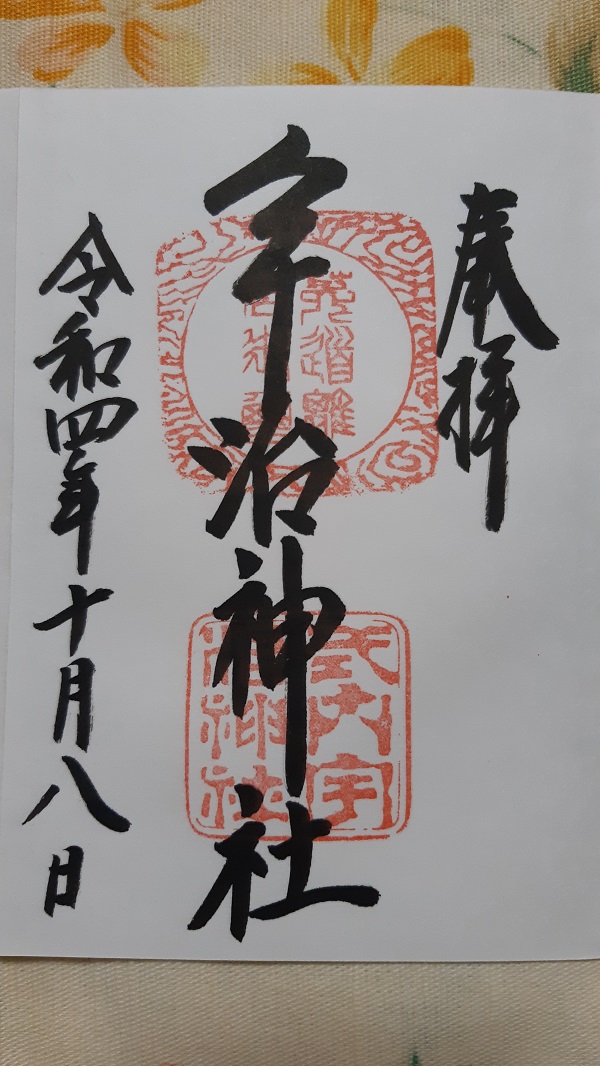 奉拝
宇治神社
令和四年十月八日
式内宇
治神社